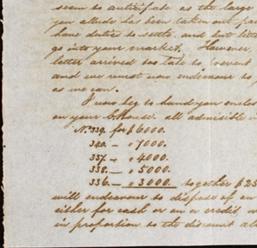 seem to anticipate as the large
you allude has been taken out par
have duties to settle, and but little
go into your market. However,
letter arrived too late to prevent
and we must now endeavour to
as we can.
I now beg to hand you enclos
on your House all admissible in
No. 339. for $6000.
340. - " 7000.
337. - " 4000.
338. - " 5000.
336. - " 3000. together $25
will endeavour to dispose of on
either for cash or on a credit w
in proportion to the discount al